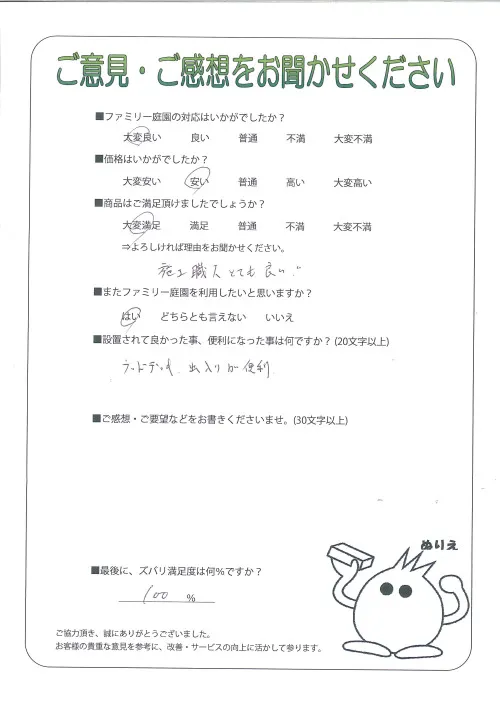 ご意見・ご感想をお聞かせください
■ファミリー庭園の対応はいかがでしたか？
大変良い 良い 普通 不満 大変不満
■価格はいかがでしたか？
大変安い 安い 普通 高い 大変高い
■商品はご満足頂けましたでしょうか？
大変満足 満足 普通 不満 大変不満
⇒よろしければ理由をお聞かせください。
施工職人とても良い
■またファミリー庭園を利用したいと思いますか？
はい どちらとも言えない いいえ
■設置されて良かった事、便利になった事は何ですか？(20文字以上)
出入りが便利
■ご感想・ご要望などをお書きくださいませ。(30文字以上)
ぬりえ
■最後に、ズバリ満足度は何％ですか？
100 %
ご協力頂き、誠にありがとうございました。
お客様の貴重な意見を参考に、改善・サービスの向上に活かして参ります。